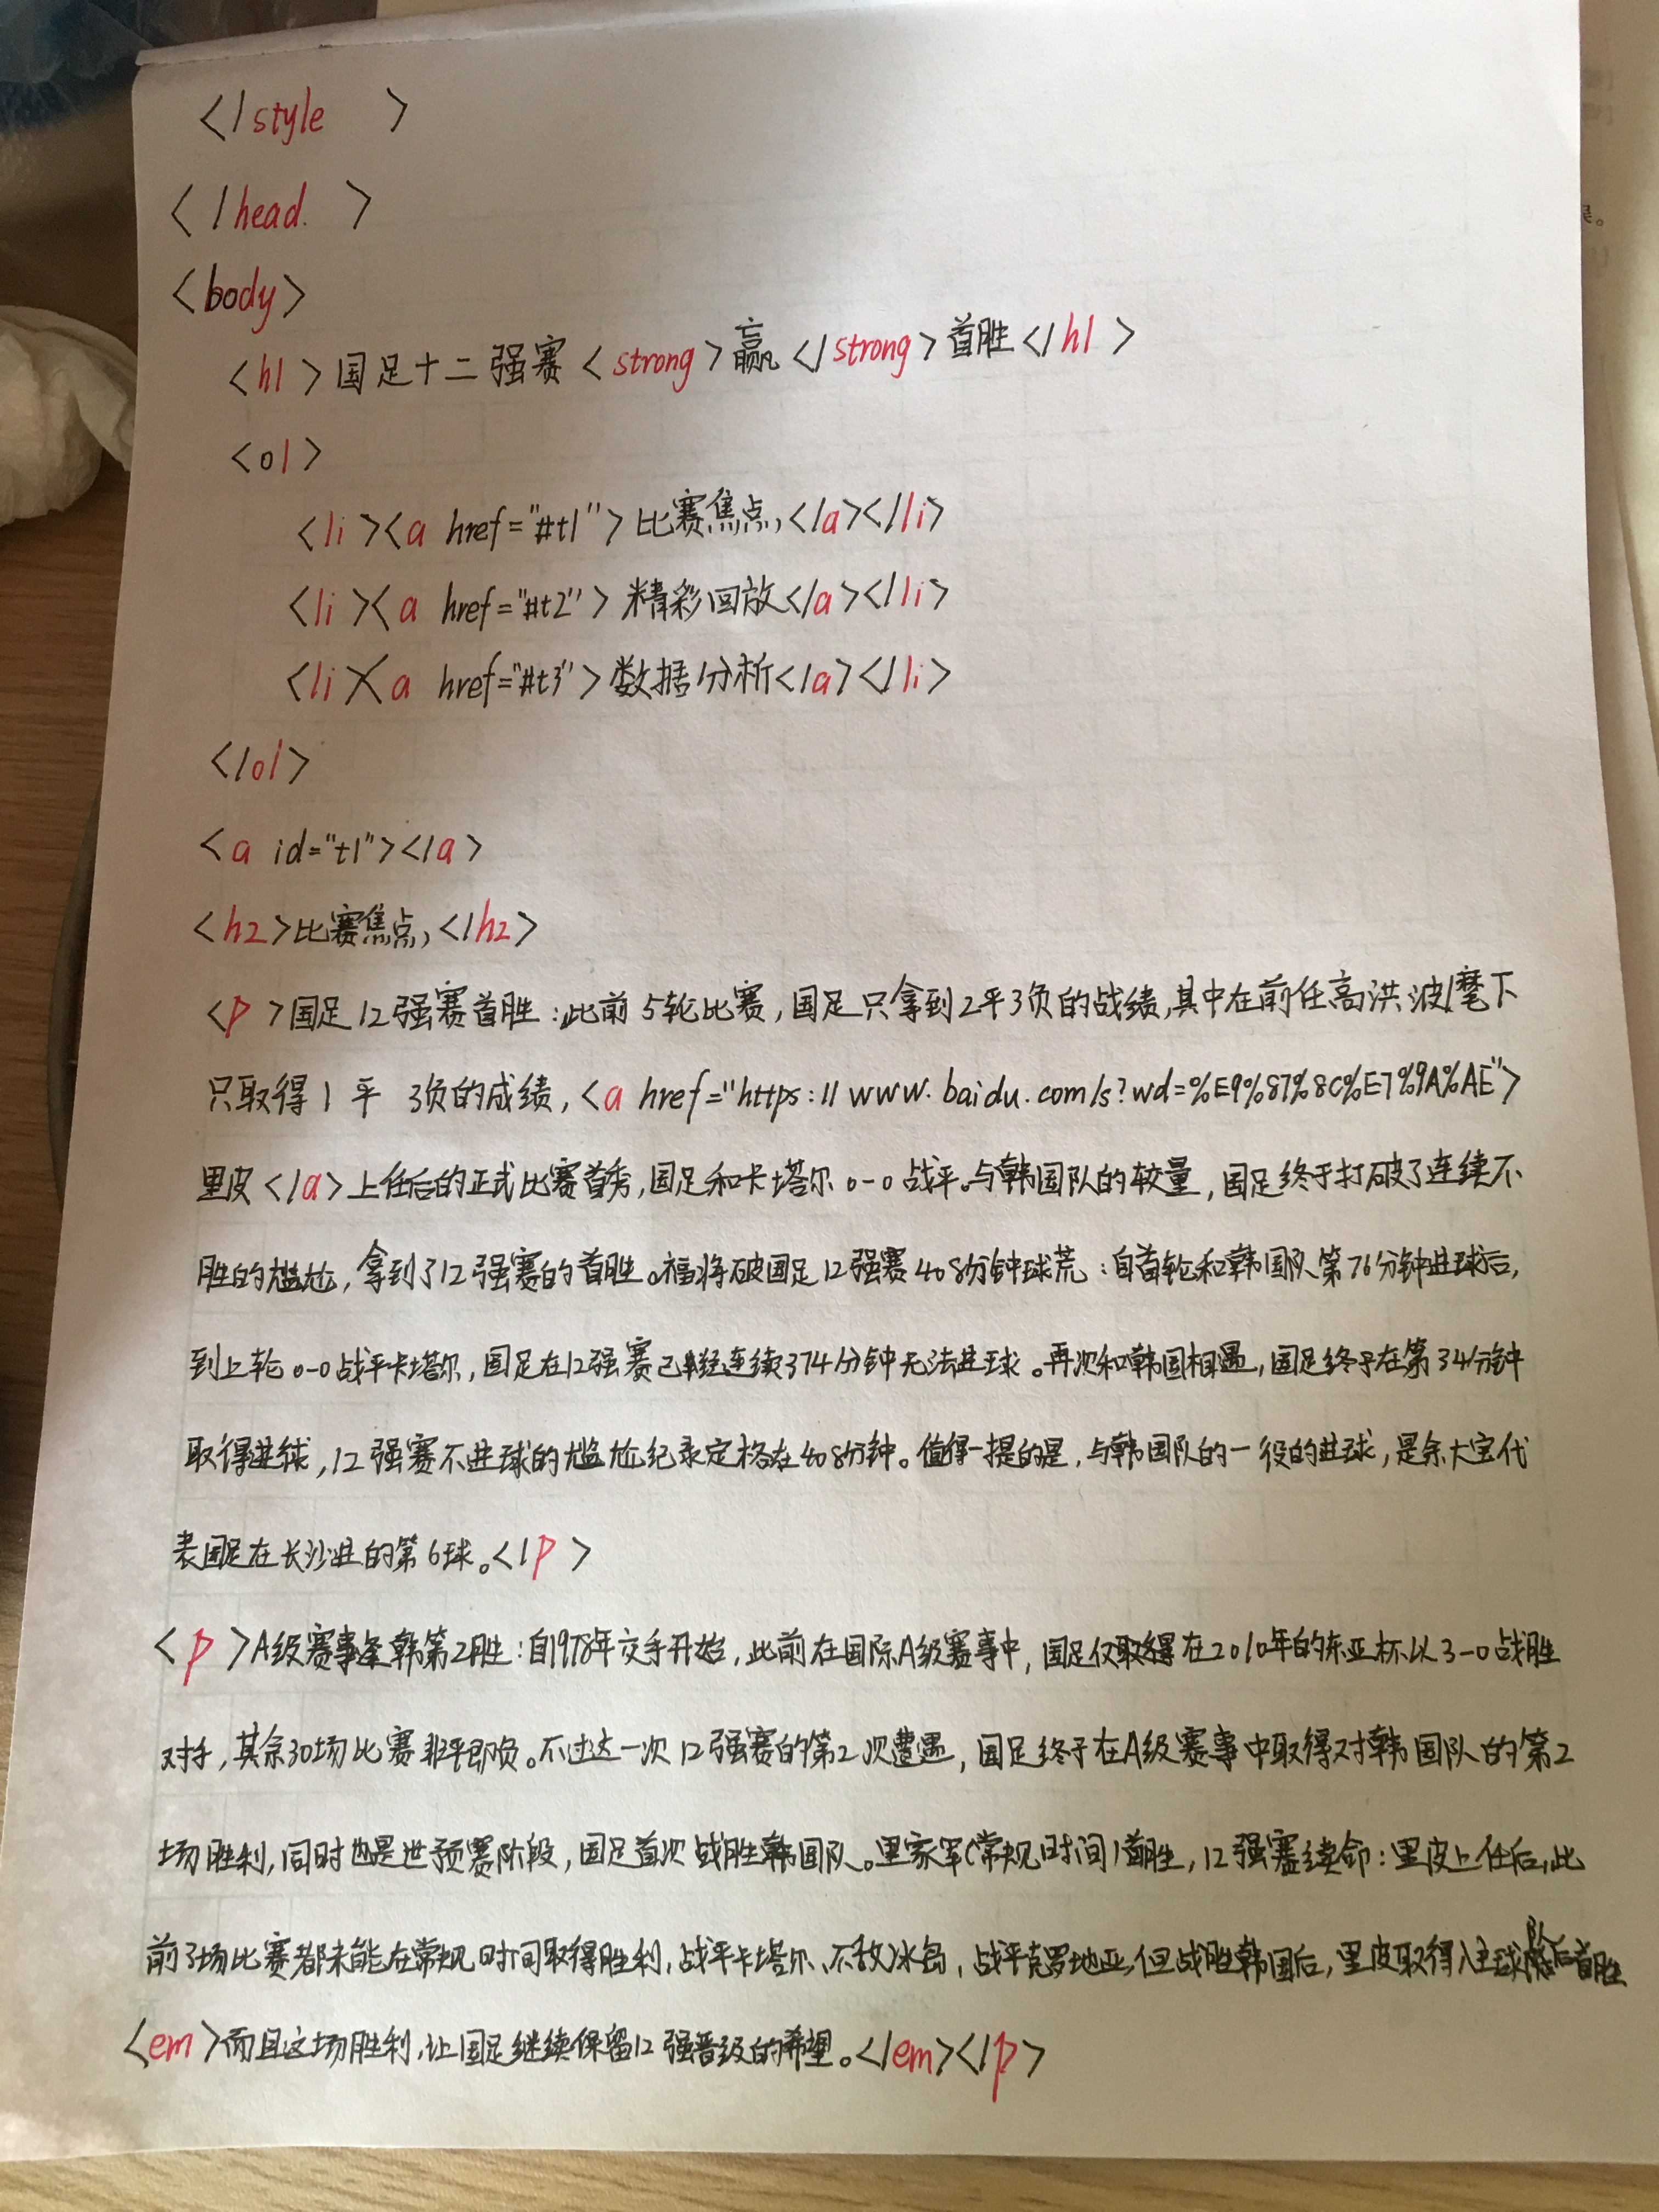 </style >
</head. >
<body>
<h1>国足十二强赛<strong>赢</strong>首胜</h1>
<ol>
<li><a href="#t1">比赛焦点</a></li>
<li><a href="#t2">精彩回放</a></li>
<li><a href="#t3">数据分析</a></li>
</ol>
<a id="t1"></a>
<h2>比赛焦点</h2>
<p>国足12强赛首胜:此前5轮比赛,国足只拿到2平3负的战绩,其中在前任高洪波麾下
只取得1平 3负的成绩,<a href="https://www.baidu.com/s?wd=%E9%87%8C%E7%9A%AE">
里皮</a>上任后的正式比赛首秀,国足和卡塔尔0-0战平。与韩国队的较量,国足终于打破了连续不
胜的尴尬,拿到了12强赛的首胜。福将破国足12强赛408分钟球荒:自首轮和韩国队第76分钟进球后,
到上轮0-0战平卡塔尔,国足在12强赛已经连续374分钟无法进球。再次和韩国相遇,国足终于在第34分钟
取得进球,12强赛不进球的尴尬纪录定格在408分钟。值得一提的是,与韩国队的一役的进球,是余大宝代
表国足在长沙进的第6球。</p>
<p>A级赛事 韩第2胜:自1978年交手开始,此前在国际A级赛事中,国足仅取得在2010年的东亚杯以3-0战胜
对手,其余30场比赛非平即负。不过这一次12强赛的第2次遭遇,国足终于在A级赛事中取得对韩国队的第2
场胜利,同时也是世预赛阶段,国足首次战胜韩国队。里家军(常规时间)首胜,12强赛续命:里皮上任后,此
前3场比赛都未能在常规时间取得胜利,战平卡塔尔、不敌冰岛,战平克罗地亚,但战胜韩国后,里皮取得入主球队后首胜
<em>而且这场胜利,让国足继续保留12强晋级的希望。</em></p>